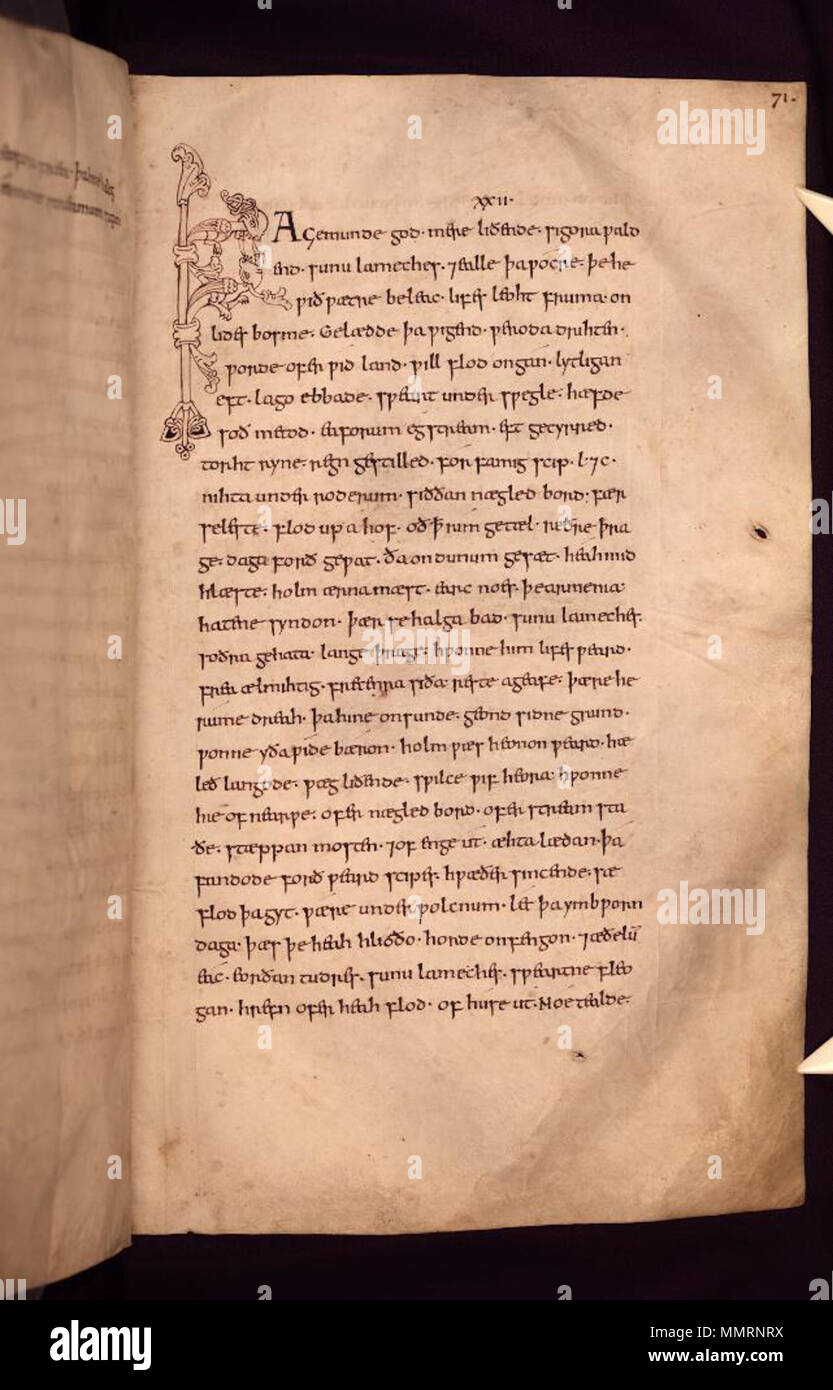 71.
XXII·
ÞA gemunde god· mere liðende· sigora ƿald
end· sunu lameches· ⁊ealle þa ƿocre· þe he
ƿið ƿætre beleac· lifes leoht fruma· on
lides bosme· Gelædde þa ƿigend· ƿeroda drihten·
ƿorde ofer ƿid land· ƿill flod ongan· lytligan
eft· lago ebbade· sƿeart under sƿegle· hæfde
soð metod· eaforum egstream· eft gecyrred·
torht ryne· regn gestilled· for famig scip· l·⁊c·
nihta under roderum· siððan nægled bord· fær
seleste· flod up a hof· oð ꝥ rim getæl· reðre þra
ge· daga forð geƿat· ða on dunum gesæt· heah mid
hlæste· holm ærna mæst· earc noes· þe armenia·
hatene syndon· þær se halga bad· sunu lameches·
soðra gehata· lange þrage· hƿonne him lifes ƿeard·
frea ælmihtig· frecenra siða· reste ageafe· þære he
rume dreah· þa hine on sunde· geond sidne grund·
ƿonne yða ƿide bæron· holm ƿæs heonon ƿeard· hæ
leð langode· ƿæg liðende· sƿilce ƿif heora· hƿonne
hie of nearƿe· ofer nægled bord· ofer stream sta
ðe· stæppan mosten· ⁊of enge ut· æhta lædan· þa
fandode forð ƿeard scipes· hƿæðer sincende· sæ
flod þa gyt· ƿære under ƿolcnum· let þa ymb ƿorn
daga· þæs þe heah hlioðo· horde onfengon· ⁊æðelū
eac· eorðan tudres· sunu lameches· sƿeartne fleo
gan· hrefn ofer heah flod· of huse ut· Noe tealde·
alamy
Image ID: MMRNRX
www.alamy.com